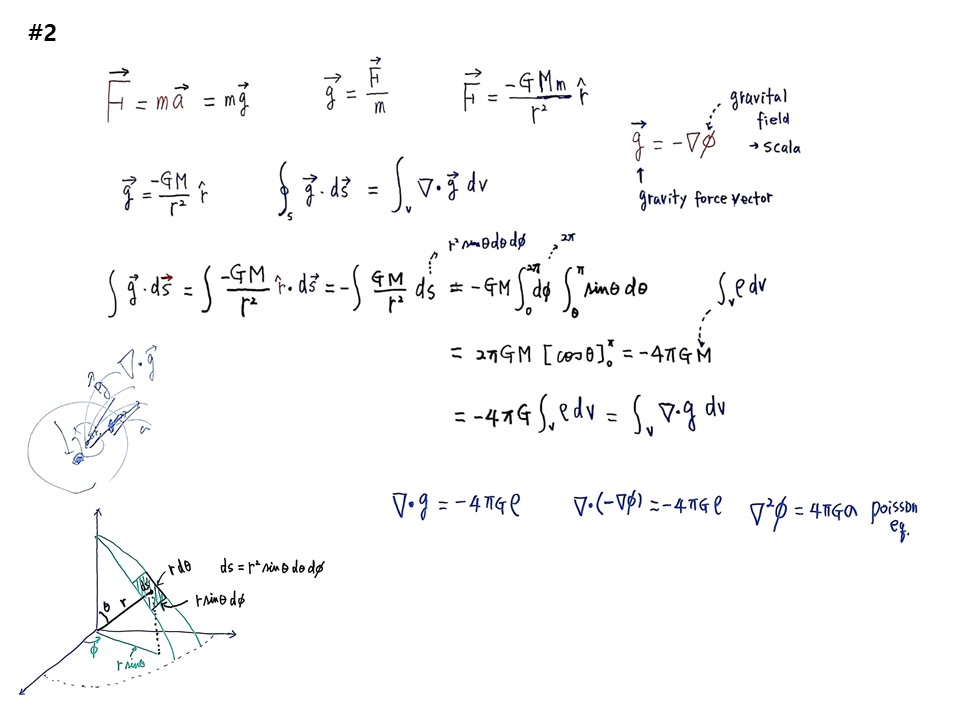 #2
F⃗ = ma⃗ = mg⃗   g⃗ = F⃗/m   F⃗ = -GMm/r² r̂
gravital
field
→ scala
g⃗ = -∇φ
gravity force vector
g⃗ = -GM/r² r̂   ∮_s g⃗·ds⃗ = ∫_v ∇·g⃗ dv
r² sinθdθdφ   2π
∫ g⃗·ds⃗ = ∫ -GM/r² r̂·ds⃗ = -∫ GM/r² ds = -GM ∫₀^2π dφ ∫_θ^π sinθ dθ   ∫_v ρ dv
= 2πGM [cosθ]₀^π = -4πGM
= -4πG ∫_v ρ dv = ∫_v ∇·g dv
∇·g⃗
∇·g = -4πGρ   ∇·(-∇φ) = -4πGρ   ∇²φ = 4πGρ   poisson
eq.
rdθ   ds = r² sinθ dθ dφ
ds
r sinθ dφ
θ   r
φ
r sinθ